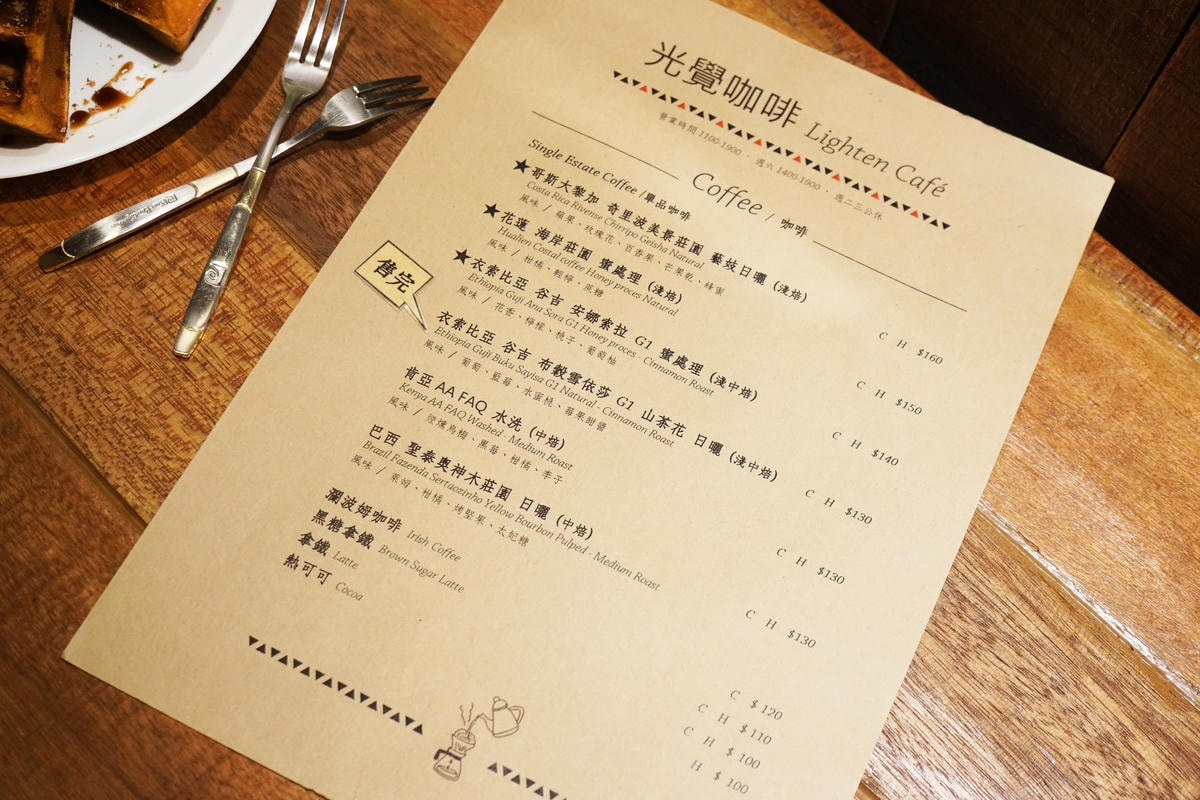 光覺咖啡 Lighten Café
營業時間 1100-1900 · 週六 1400-1900 · 週二三公休
Coffee / 咖啡
Single Estate Coffee /單品咖啡
★哥斯大黎加 奇里波美景莊園 藝妓日曬 (淺焙)
Costa Rica Rivense Chirripo Geisha Natural
風味 / 蘋果、玫瑰花、百香果、芒果乾、蜂蜜
C H $160
★花蓮 海岸莊園 蜜處理 (淺焙)
Hualien Costal coffee Honey proces Natural
風味 / 柑橘、輕檸、蔗糖
C H $150
售完
★衣索比亞 谷吉 安娜索拉 G1 蜜處理 (淺中焙)
Ethiopia Guji Ana Sora G1 Honey proces · Cinnamon Roast
風味 / 花香、檸檬、桃子、葡萄柚
C H $140
衣索比亞 谷吉 布穀雪依莎 G1 山茶花 日曬 (淺中焙)
Ethiopia Guji Buku Sayisa G1 Natural · Cinnamon Roast
風味 / 葡萄、藍莓、水蜜桃、莓果甜醬
C H $130
肯亞 AA FAQ 水洗 (中焙)
Kenya AA FAQ Washed · Medium Roast
風味 / 煙燻烏梅、黑莓、柑橘、李子
C H $130
巴西 聖泰奧神木莊園 日曬 (中焙)
Brazil Fazenda Sertaozinho Yellow Bourbon Pulped · Medium Roast
風味 / 萊姆、柑橘、烤堅果、太妃糖
C H $130
瀾波姆咖啡 Irish Coffee C $ 120
黑糖拿鐵 Brown Sugar Latte C H $ 110
拿鐵 Latte C H $ 100
熱可可 Cocoa H $ 100